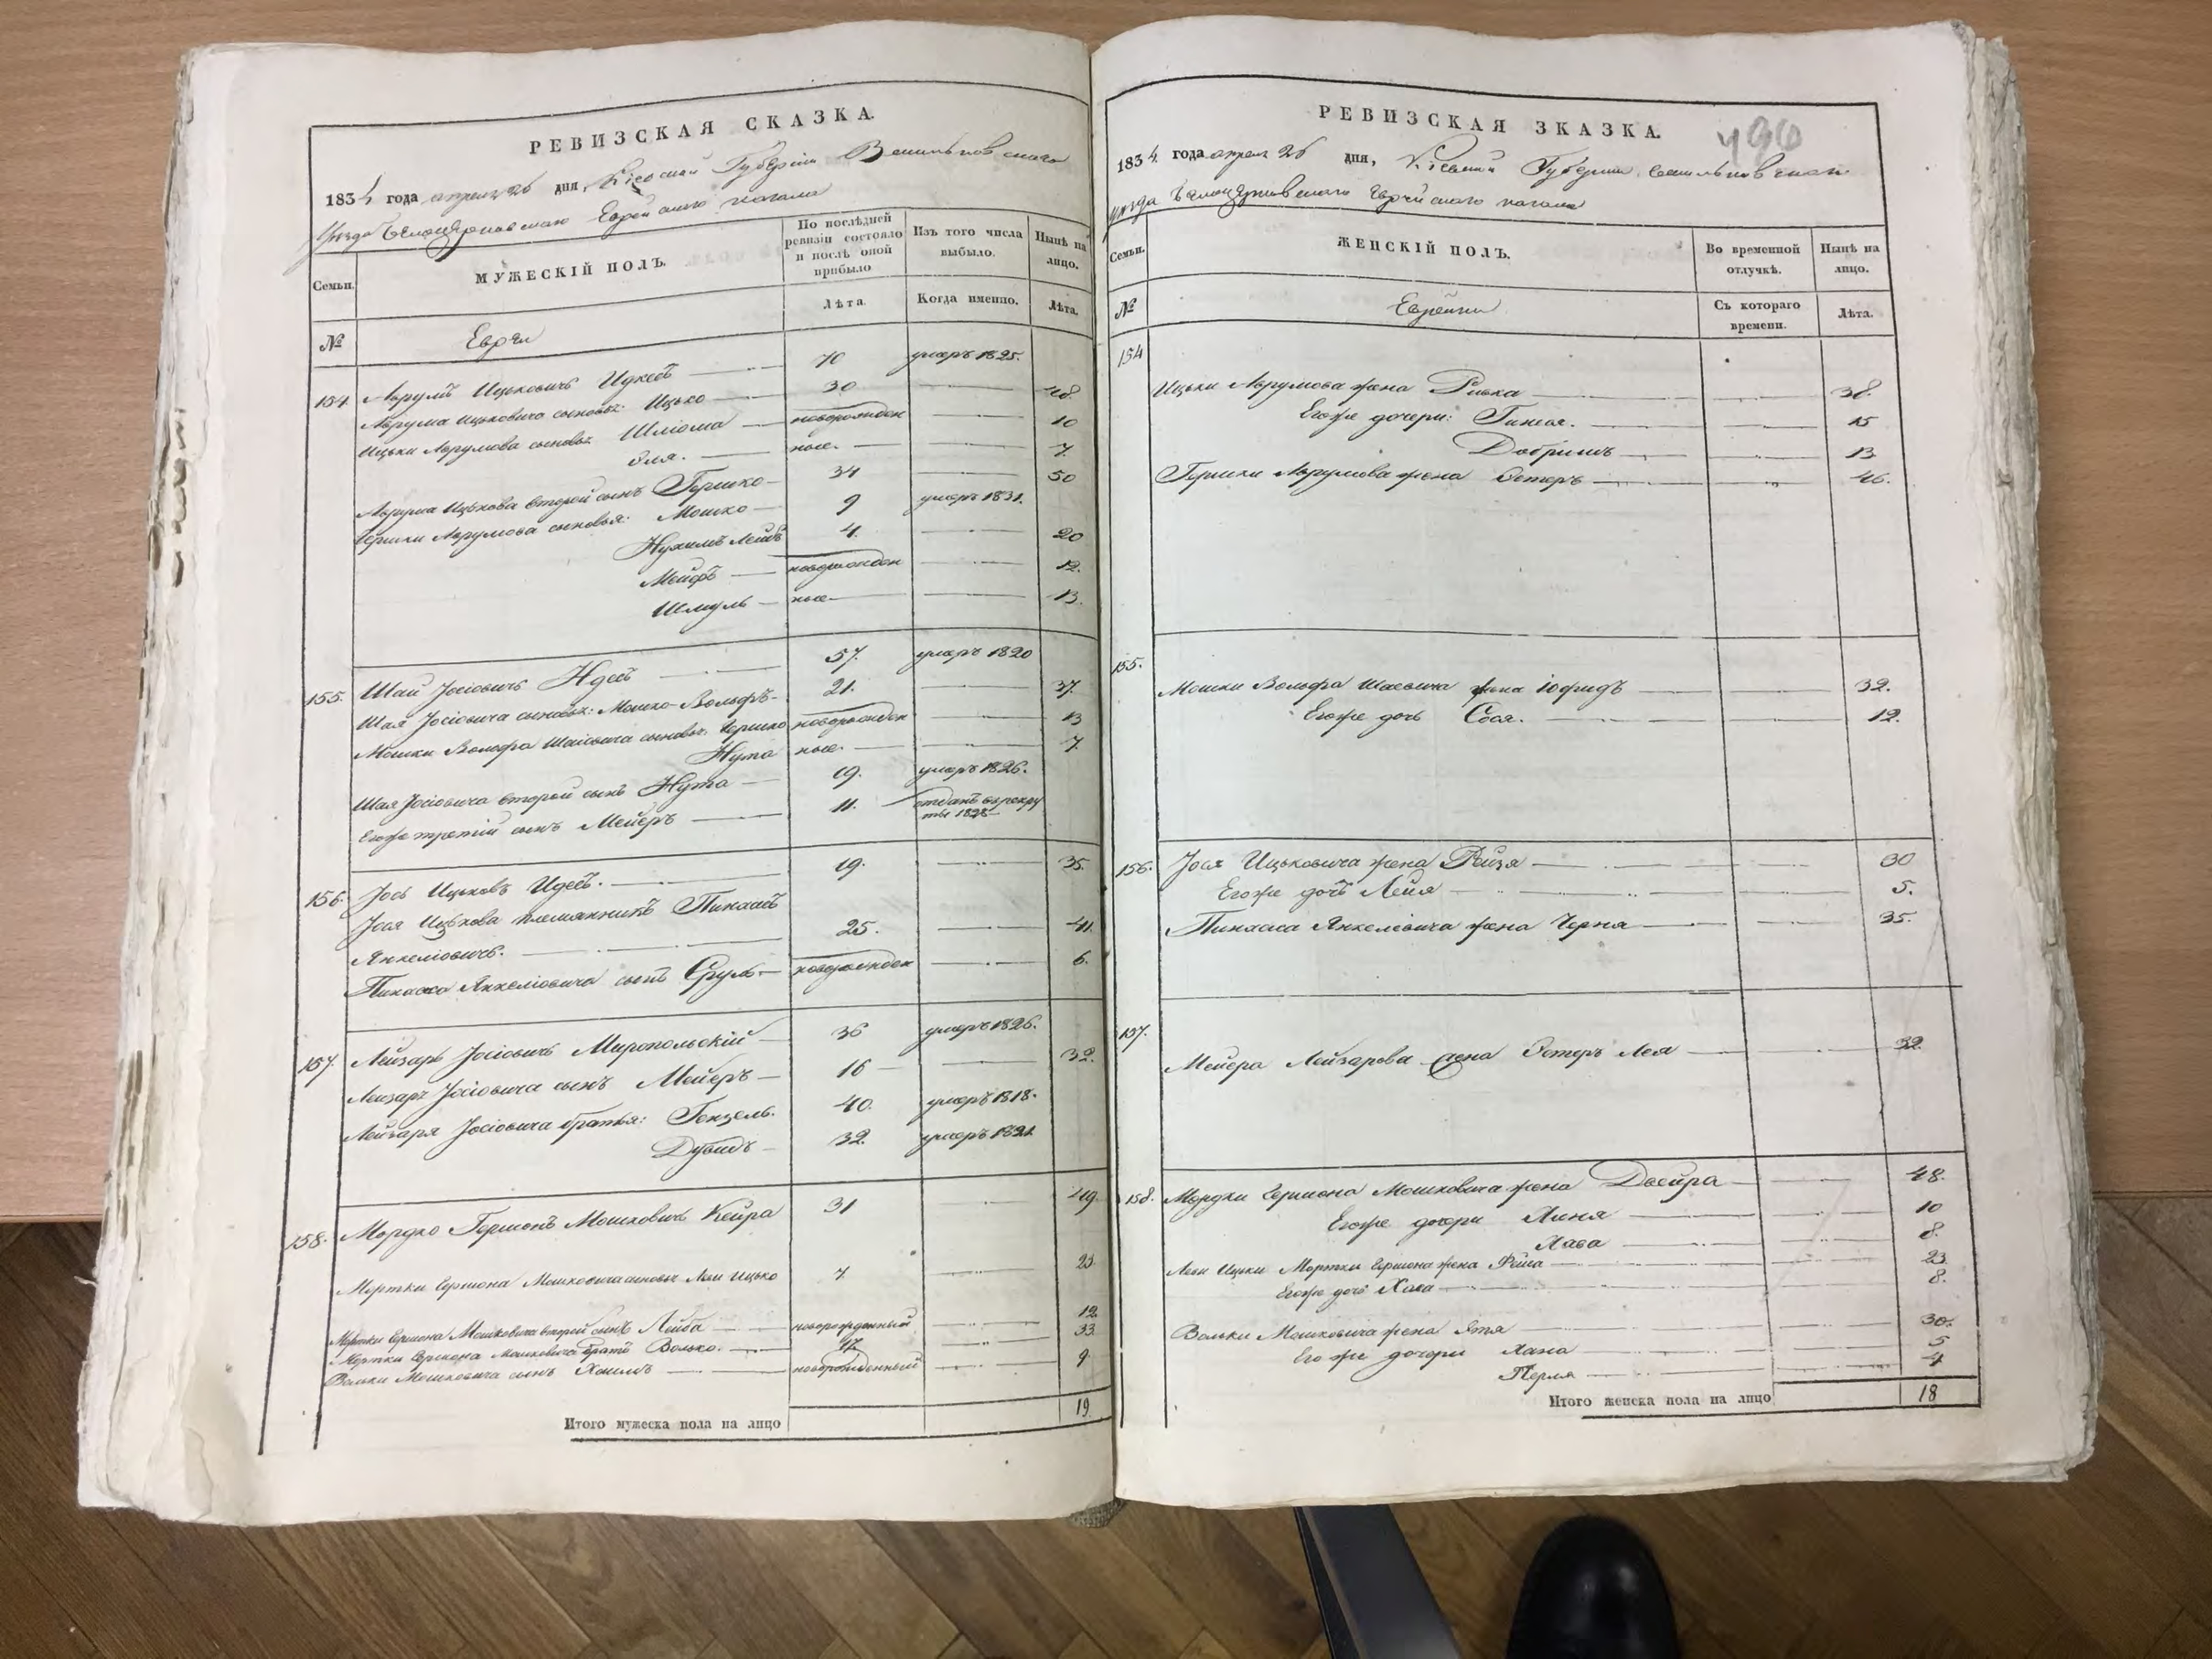 РЕВИЗСКАЯ СКАЗКА.
1834 года апреля 26 дня, Кіевской Губерніи Васильковскаго
уезда Белоцерковскаго Еврейскаго кагала
Семьи.
МУЖЕСКІЙ ПОЛЪ.
По послѣдней ревизіи состояло и послѣ оной прибыло
Изъ того числа выбыло.
Нынѣ на лицо.
№
Евреи
Лѣта.
Когда именно.
Лѣта.
154 Аврумъ Ицьковичъ 70 умеръ 1825.
Аврума Ицьковича сыновья: Ицько 30 48.
Ицьки Аврумова сыновья Шліома новорожден 10
ные. 7
Аврума Ицькова второй сынъ Гершко 34 50
Гершки Аврумова сыновья: Мошко 9 умеръ 1831.
Нухимъ Лейба 4. 20
Мейеръ новорожден 12.
Шмуль ные 13.
155. Шая Josіовичъ 57. умеръ 1820
Шая Josіовича сыновья: Мошко Вольфъ 21. 37.
Мошки Вольфа Шаіовича сыновья: Гершко новорожден 13
Нута ные. 7.
Шая Josіовича второй сынъ Нута 19. умеръ 1826.
Егоже третій сынъ Мейеръ 11. отданъ въ рекру
ты 1828
156. Jось Ицьковъ 19. 35.
Jося Ицькова племянникъ Пинхасъ
Янкеліовичъ. 25. 41.
Пинхаса Янкеліовича сынъ Сруль новорожден 6.
157. Лейзаръ Josіовичъ Миропольскій 36 умеръ 1826.
Лейзаръ Josіовича сынъ Мейеръ 16 32.
Лейзаря Josіовича братья: Гензель. 40. умеръ 1818.
Дувидъ 32. умеръ 1821
158. Мордко Гершонъ Мошковичъ Кейра 31 49.
Мортки Гершона Мошковича сыновья Ицько 7. 23
Мортки Гершона Мошковича второй сынъ Лейба новорожденный 12.
Мортки Гершона Мошковича братъ Волько. 17. 33
Вольки Мошковича сынъ Хаимъ новорожденный 9
Итого мужеска пола на лицо 19
РЕВИЗСКАЯ ЗКАЗКА.
496
1834 года апреля 26 дня, Кіевской Губерніи Васильковскаго
уезда Белоцерковскаго Еврейскаго кагала
Семьи.
ЖЕНСКІЙ ПОЛЪ.
Во временной отлучкѣ.
Нынѣ на лицо.
№
Еврейки
Съ котораго времени.
Лѣта.
154
Ицьки Аврумова жена Ривка 38.
Егоже дочери: 15
Добришъ 13
Гершки Аврумова жена Эстеръ 46.
155.
Мошки Вольфа Шаевича жена Юфидъ 32.
Егоже дочь Сося. 12.
156. Jося Ицьковича жена Рейзя 30
Егоже дочь Лейя 5.
Пинхаса Янкеліовича жена Черня 35.
157.
Мейера Лейзарова жена Эстеръ Лея 32.
158. Мордки Гершона Мошковича жена Двейра 48.
Егоже дочери 10
Хава 8.
Ицьки Мортки Гершона жена 23
Егоже дочь 8.
Вольки Мошковича жена 30.
Егоже дочери Хана 5
Перля 4
Итого женска пола на лицо 18